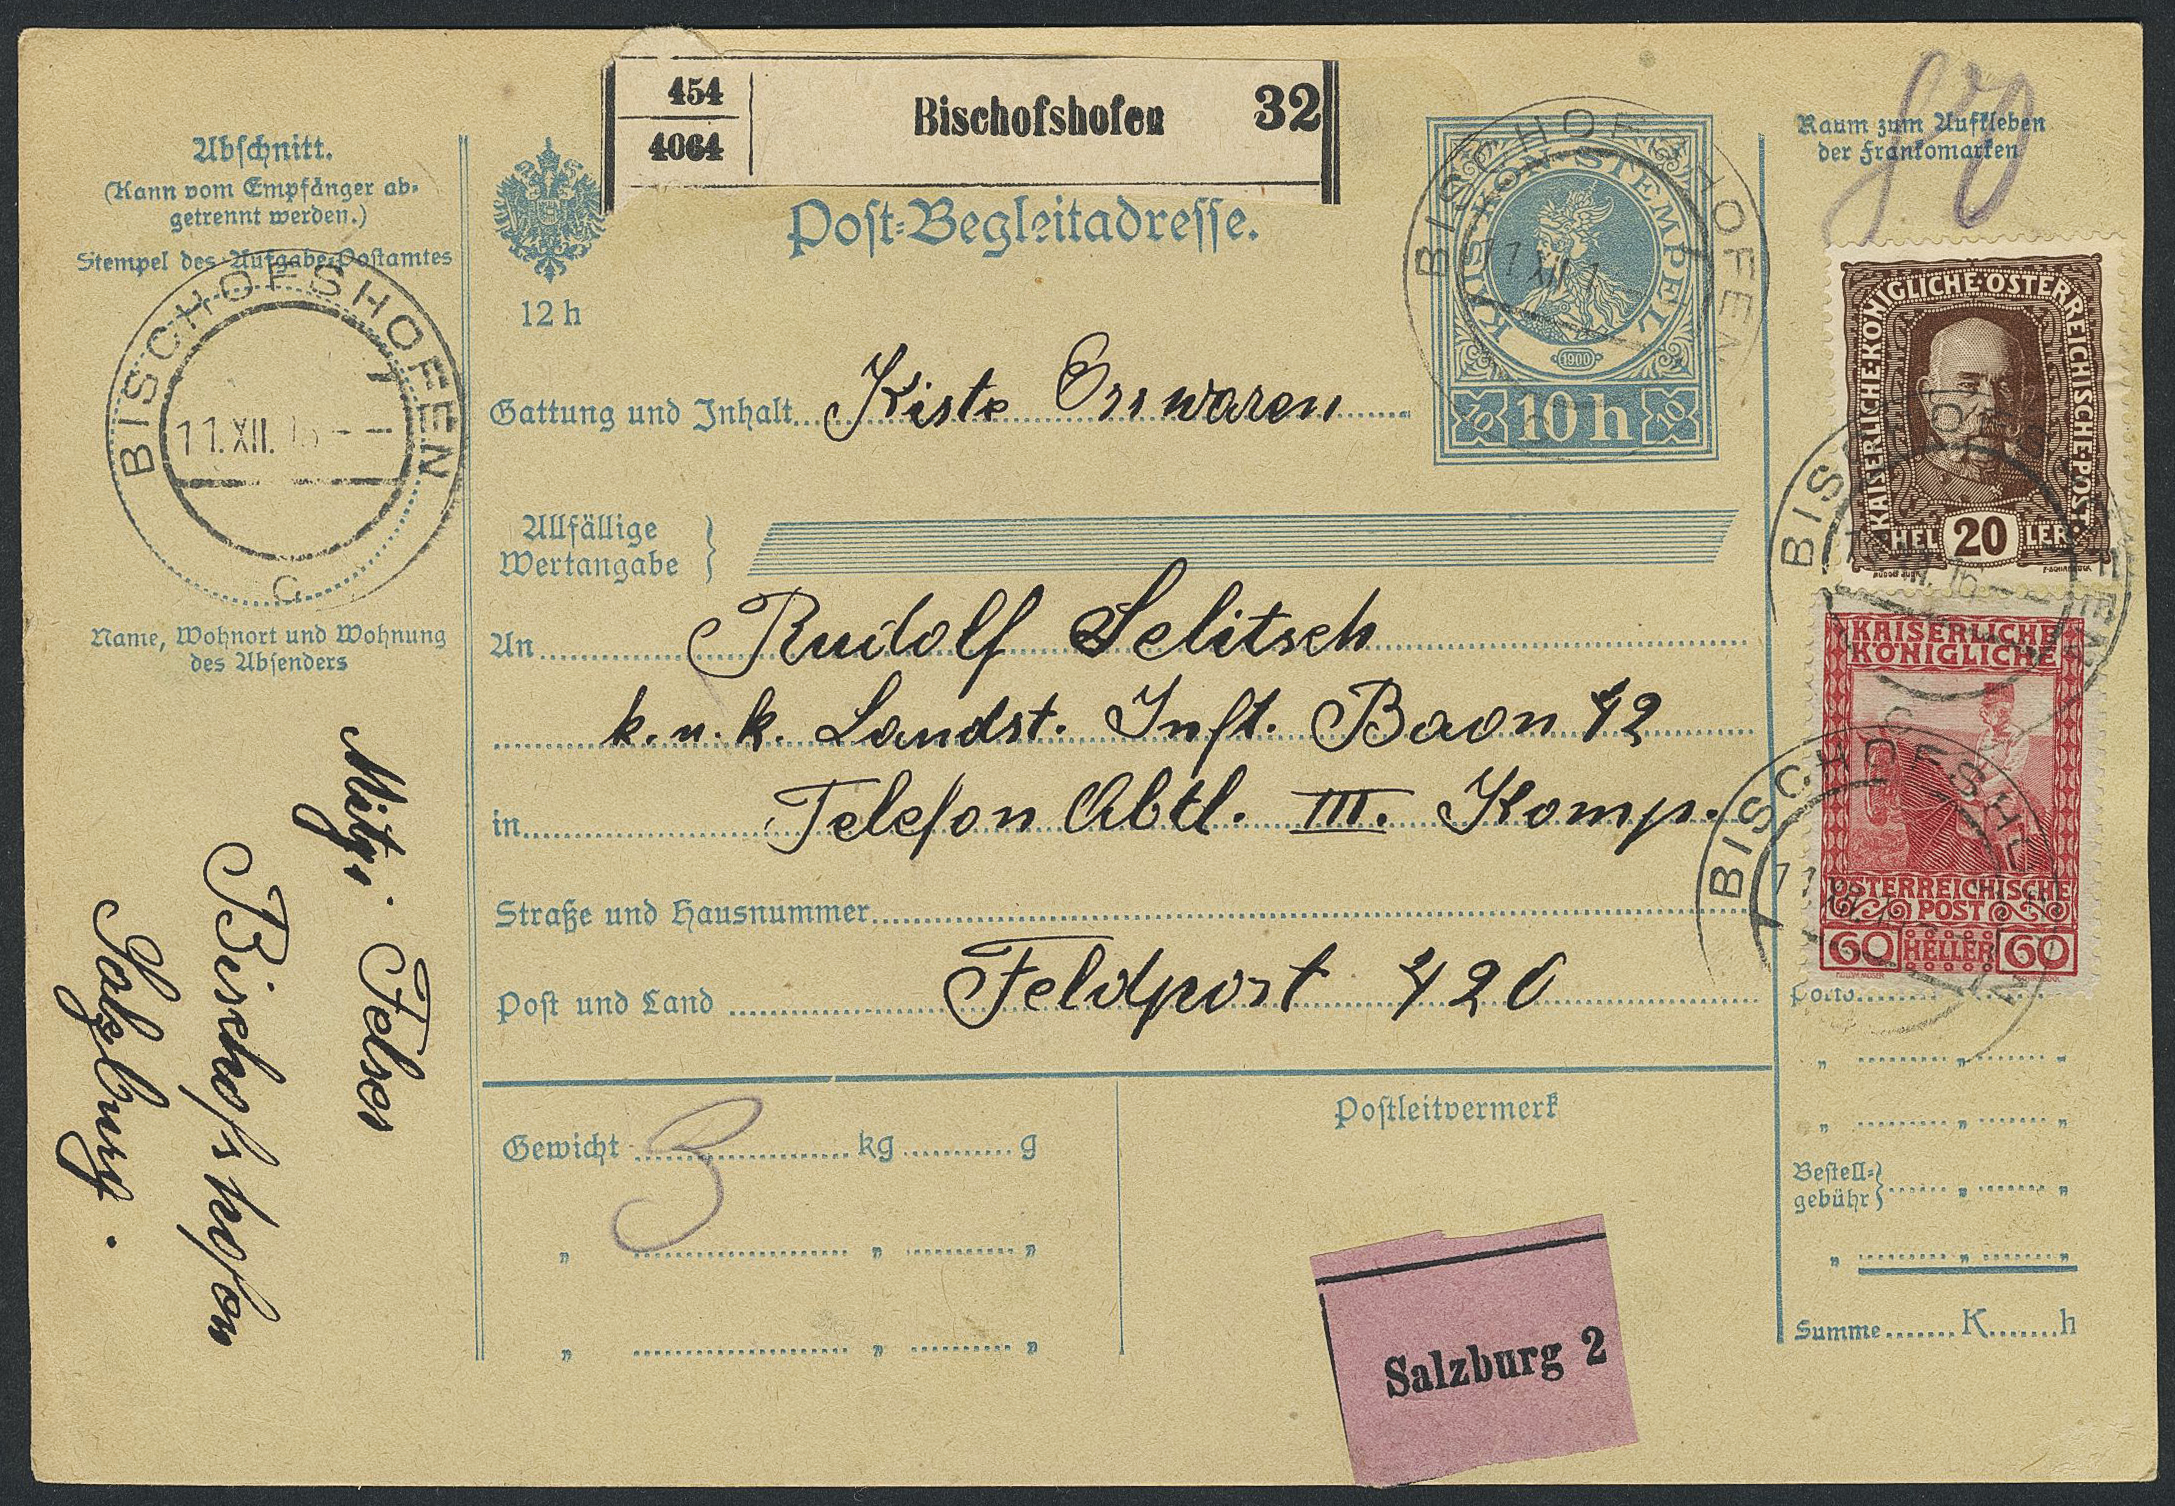 454
4064
Bischofshofen
32
Abschnitt.
(Kann vom Empfänger ab-
getrennt werden.)
Stempel des Aufgabe-Postamtes
BISCHOFSHOFEN
11.XII.
c
Name, Wohnort und Wohnung
des Absenders
Mitzi Felser
Bischofshofen
Salzburg.
Post-Begleitadresse.
12 h
Gattung und Inhalt Kiste Esswaren
Allfällige
Wertangabe
An Rudolf Selitsch
k. u. k. Landst. Inft. Baon 42
in Telefon Abtl. III. Komp.
Straße und Hausnummer
Post und Land Feldpost 420
Gewicht 3 kg g
" " "
" " "
Postleitvermerk
Salzburg 2
BISCHOFSHOFEN
KAIS. KÖN. STEMPEL
11 XII 1
1900
10 10 h 10
80
Raum zum Aufkleben
der Frankomarken
KAISERLICHE·KÖNIGLICHE·ÖSTERREICHISCHE·POST
HEL 20 LER
BISCHOFSHOFEN
KAISERLICHE
KÖNIGLICHE
ÖSTERREICHISCHE
POST
60 HELLER 60
BISCHOFSHOFEN
Porto
" " "
" " "
Bestell-
gebühr " "
" " "
Summe K h